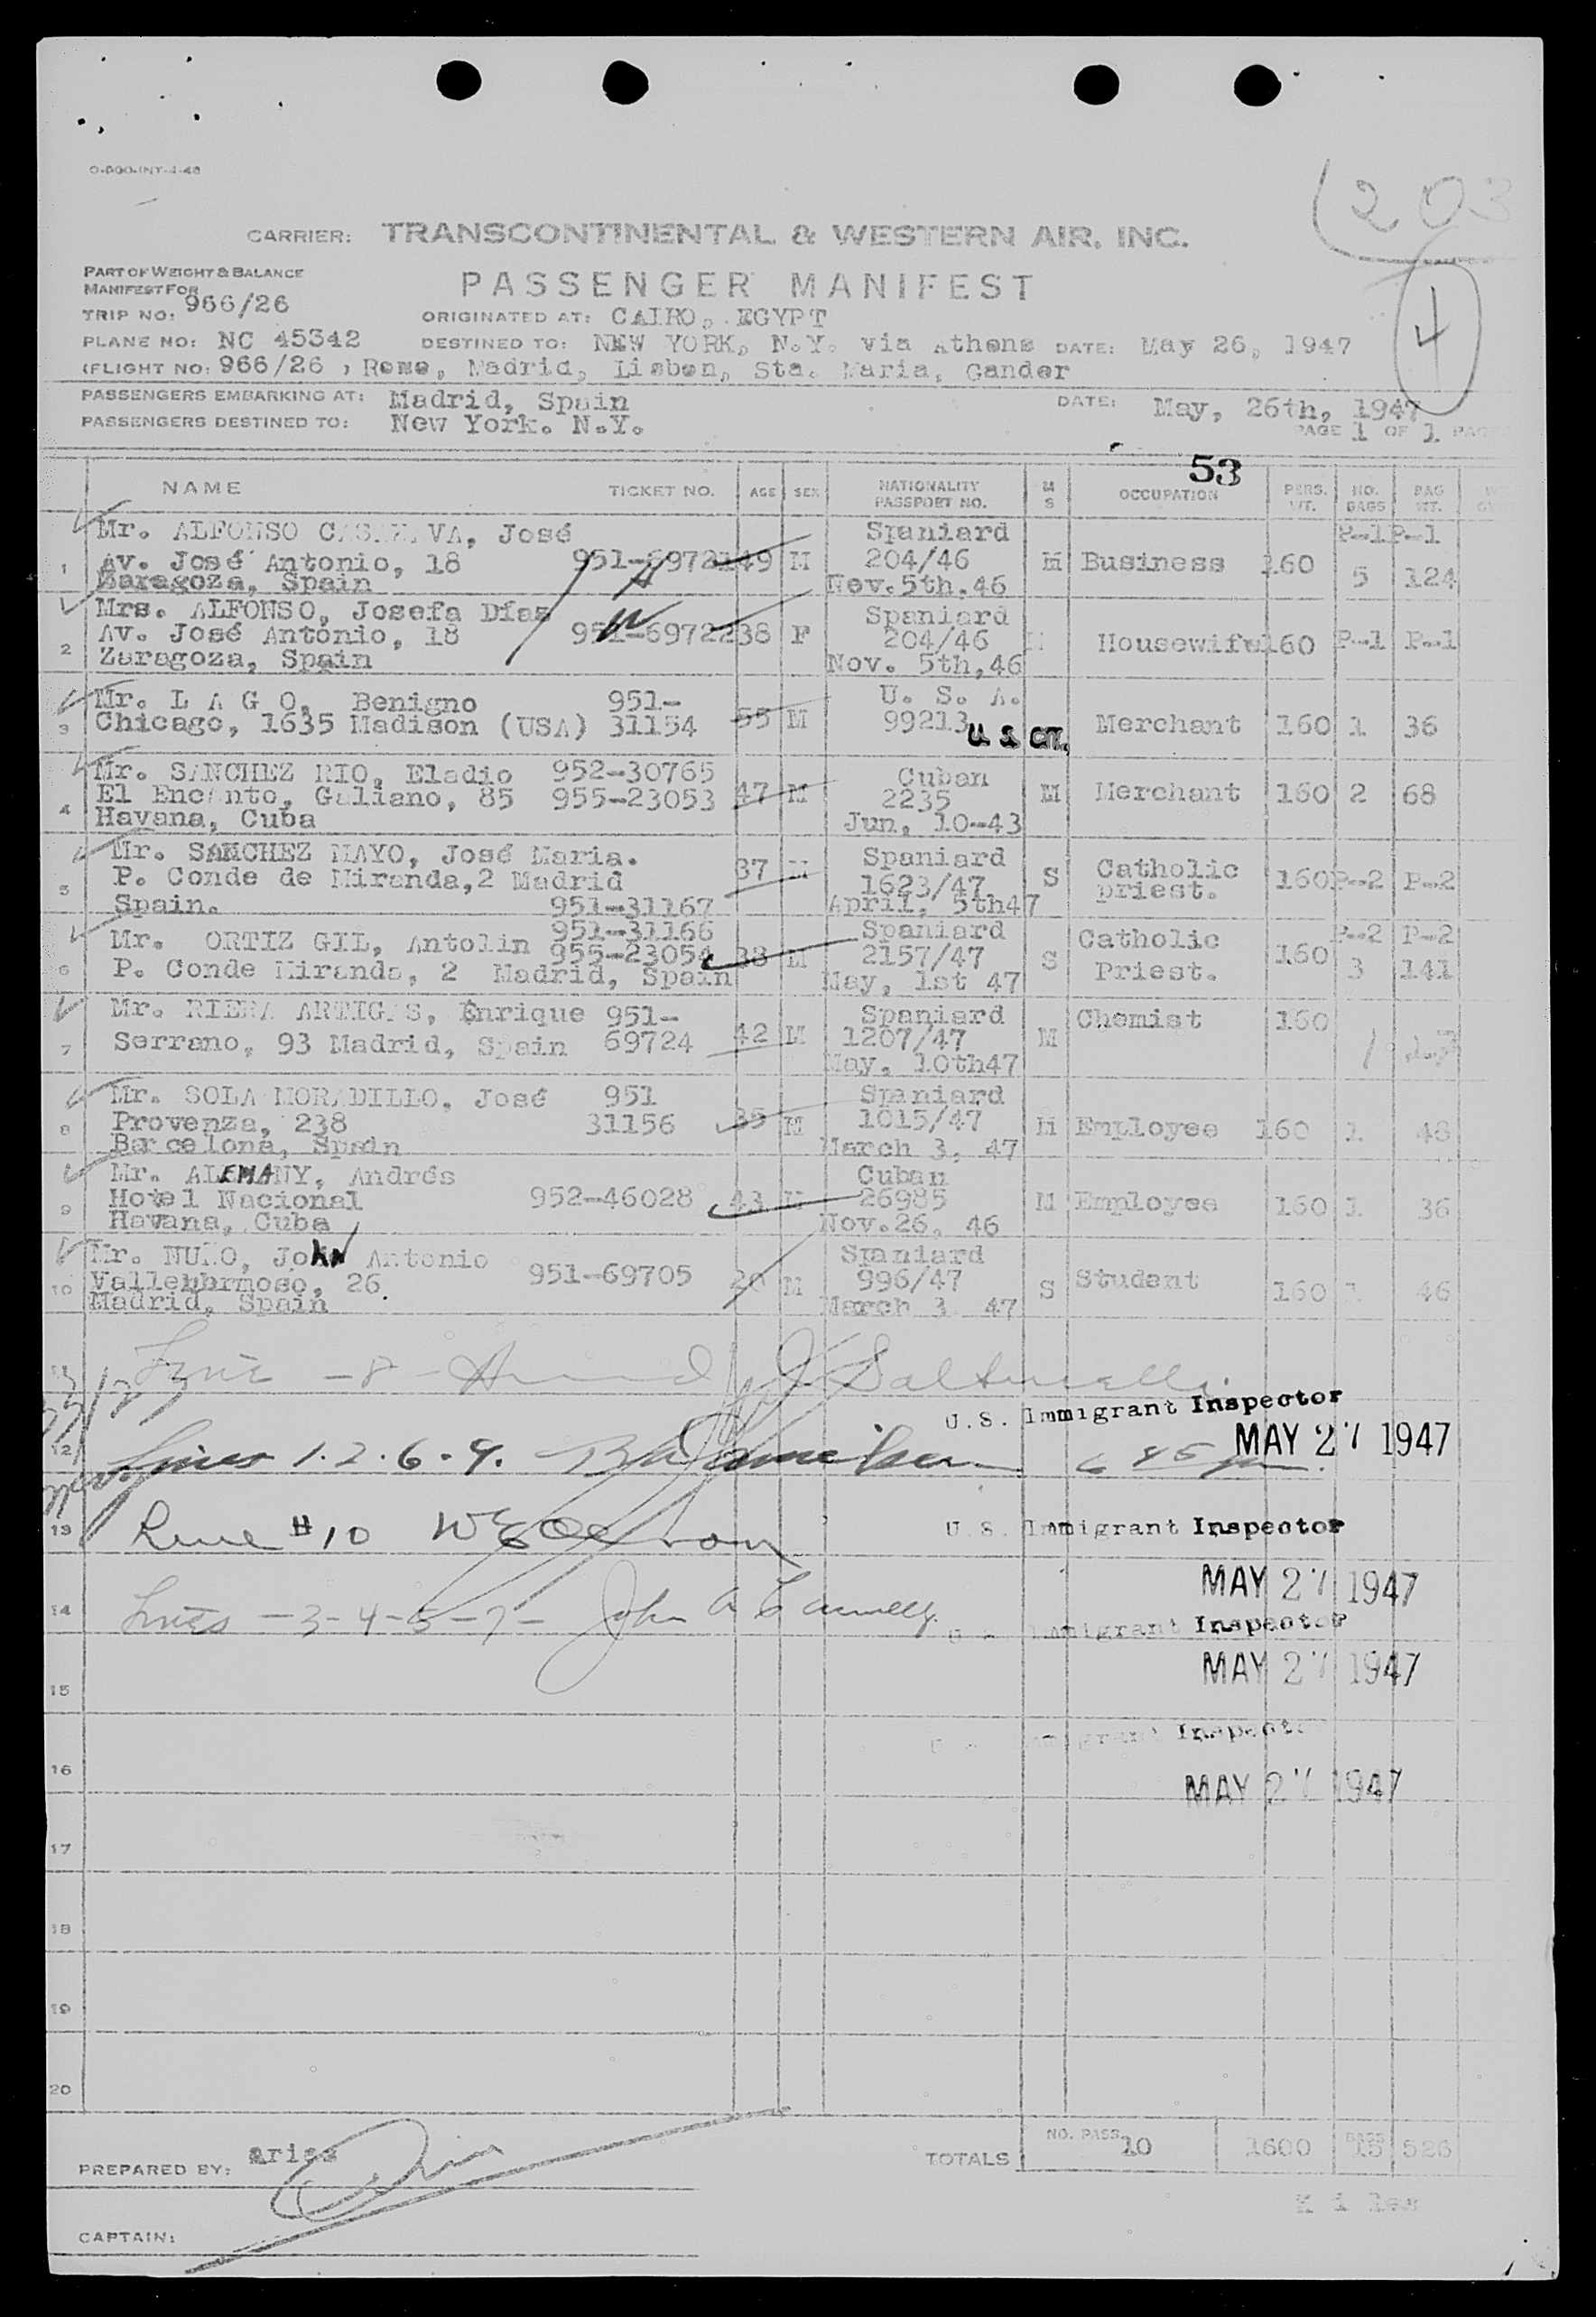 O-500-INT-4-46
203
CARRIER: TRANSCONTINENTAL & WESTERN AIR. INC.
4
PART OF WEIGHT & BALANCE
MANIFEST FOR
PASSENGER MANIFEST
TRIP NO: 966/26 ORIGINATED AT: CAIRO, EGYPT
PLANE NO: NC 45342 DESTINED TO: NEW YORK, N.Y. via Athens DATE: May 26, 1947
(FLIGHT NO: 966/26 , Rome, Madrid, Lisbon, Sta. Maria, Gander
PASSENGERS EMBARKING AT: Madrid, Spain DATE: May, 26th, 1947
PASSENGERS DESTINED TO: New York. N.Y. PAGE 1 OF 1
53
NAME TICKET NO. AGE SEX NATIONALITY PASSPORT NO. M S OCCUPATION PERS. WT. NO. BAGS BAG WT.
Mr. ALFONSO José Spaniard P-1 P-1
1 Av. José Antonio, 18 951-69721 49 M 204/46 M Business 160 5 124
Zaragoza, Spain Nov.5th,46
Mrs. ALFONSO, Josefa Días Spaniard
2 Av. José Antonio, 18 951-69722 38 F 204/46 Housewife 160 P-1 P-1
Zaragoza, Spain Nov. 5th,46
Mr. L A G O, Benigno 951- U. S. A.
3 Chicago, 1635 Madison (USA) 31154 55 M 99213 U S CIT. Merchant 160 1 36
Mr. SANCHEZ RIO, Eladio 952-30765 Cuban
4 El Encanto, Galiano, 85 955-23053 47 M 2235 M Merchant 160 2 68
Havana, Cuba Jun, 10-43
Mr. SANCHEZ MAYO, José Maria. Spaniard
5 P. Conde de Miranda,2 Madrid 37 M 1623/47 S Catholic priest. 160 P-2 P-2
Spain. 951-31167 April, 5th47
951-31166 Spaniard P-2 P-2
6 Mr. ORTIZ GIL, Antolin 955-23054 38 M 2157/47 S Catholic Priest. 160 3 141
P. Conde Miranda, 2 Madrid, Spain May, 1st 47
Mr. RIERA ARTIGAS, Enrique 951- Spaniard Chemist 160
7 Serrano, 93 Madrid, Spain 69724 42 M 1207/47 M 1
May, 10th47
Mr. SOLA MORADILLO, José 951 Spaniard
8 Provenza, 238 31156 35 M 1015/47 M Employee 160 1 48
Barcelona, Spain March 3, 47
Mr. ALEMANY, Andrés Cuban
9 Hotel Nacional 952-46028 43 M 26985 M Employee 160 1 36
Havana, Cuba Nov.26, 46
Mr. Antonio Spaniard
10 Vallehermoso, 26. 951-69705 20 M 996/47 S Student 160 1 46
Madrid, Spain March 3 47
Line -8-
U.S. Immigrant Inspector
12 Lines 1.2.6.9. MAY 27 1947
13 Line #10 U.S. Immigrant Inspector
MAY 27 1947
14 Lines -3-4-5-7- John A Immigrant Inspector
MAY 27 1947
15
Inspector
16 MAY 27 1947
17
18
19
20
PREPARED BY: TOTALS NO. PASS. 10 1600 BAGS 15 526
Kilos
CAPTAIN: